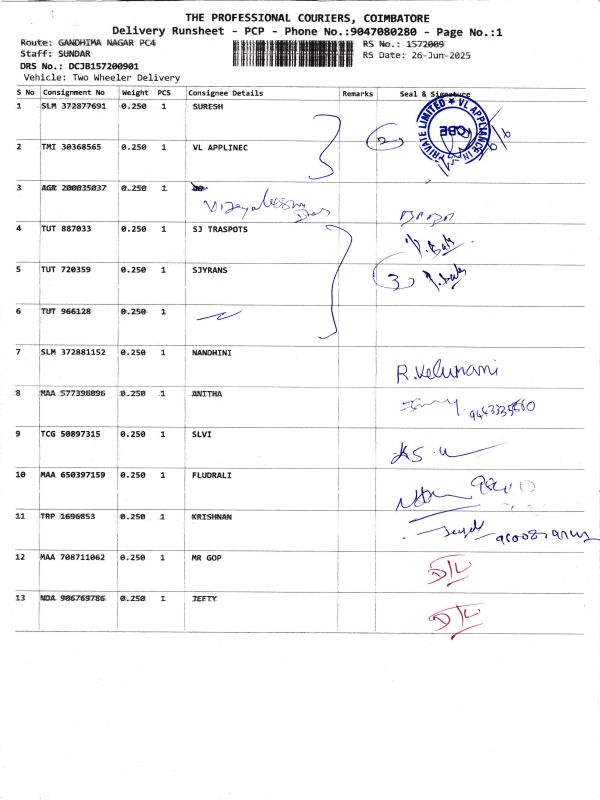 THE PROFESSIONAL COURIERS, COIMBATORE
Delivery Runsheet - PCP - Phone No.:9047080280 - Page No.:1
Route: GANDHIMA NAGAR PC4 RS No.: 1572009
Staff: SUNDAR RS Date: 26-Jun-2025
DRS No.: DCJB157200901
Vehicle: Two Wheeler Delivery
S No Consignment No Weight PCS Consignee Details Remarks Seal & Signature
1 SLM 372877691 0.250 1 SURESH
PRIVATE LIMITED ★ VL APPLIANCE IN
CBE
2
2 TMI 30368565 0.250 1 VL APPLINEC
3 AGR 200035037 0.250 1
4 TUT 887033 0.250 1 SJ TRASPOTS
5 TUT 720359 0.250 1 SJYRANS 3
6 TUT 966128 0.250 1
7 SLM 372881152 0.250 1 NANDHINI R.Velumani
8 MAA 577396096 0.250 1 ANITHA
9 TCG 50897315 0.250 1 SLVI
10 MAA 650397159 0.250 1 FLUDRALI
11 TRP 1696853 0.250 1 KRISHNAN
12 MAA 708711062 0.250 1 MR GOP D/L
13 NDA 906769786 0.250 1 JEETY D/L